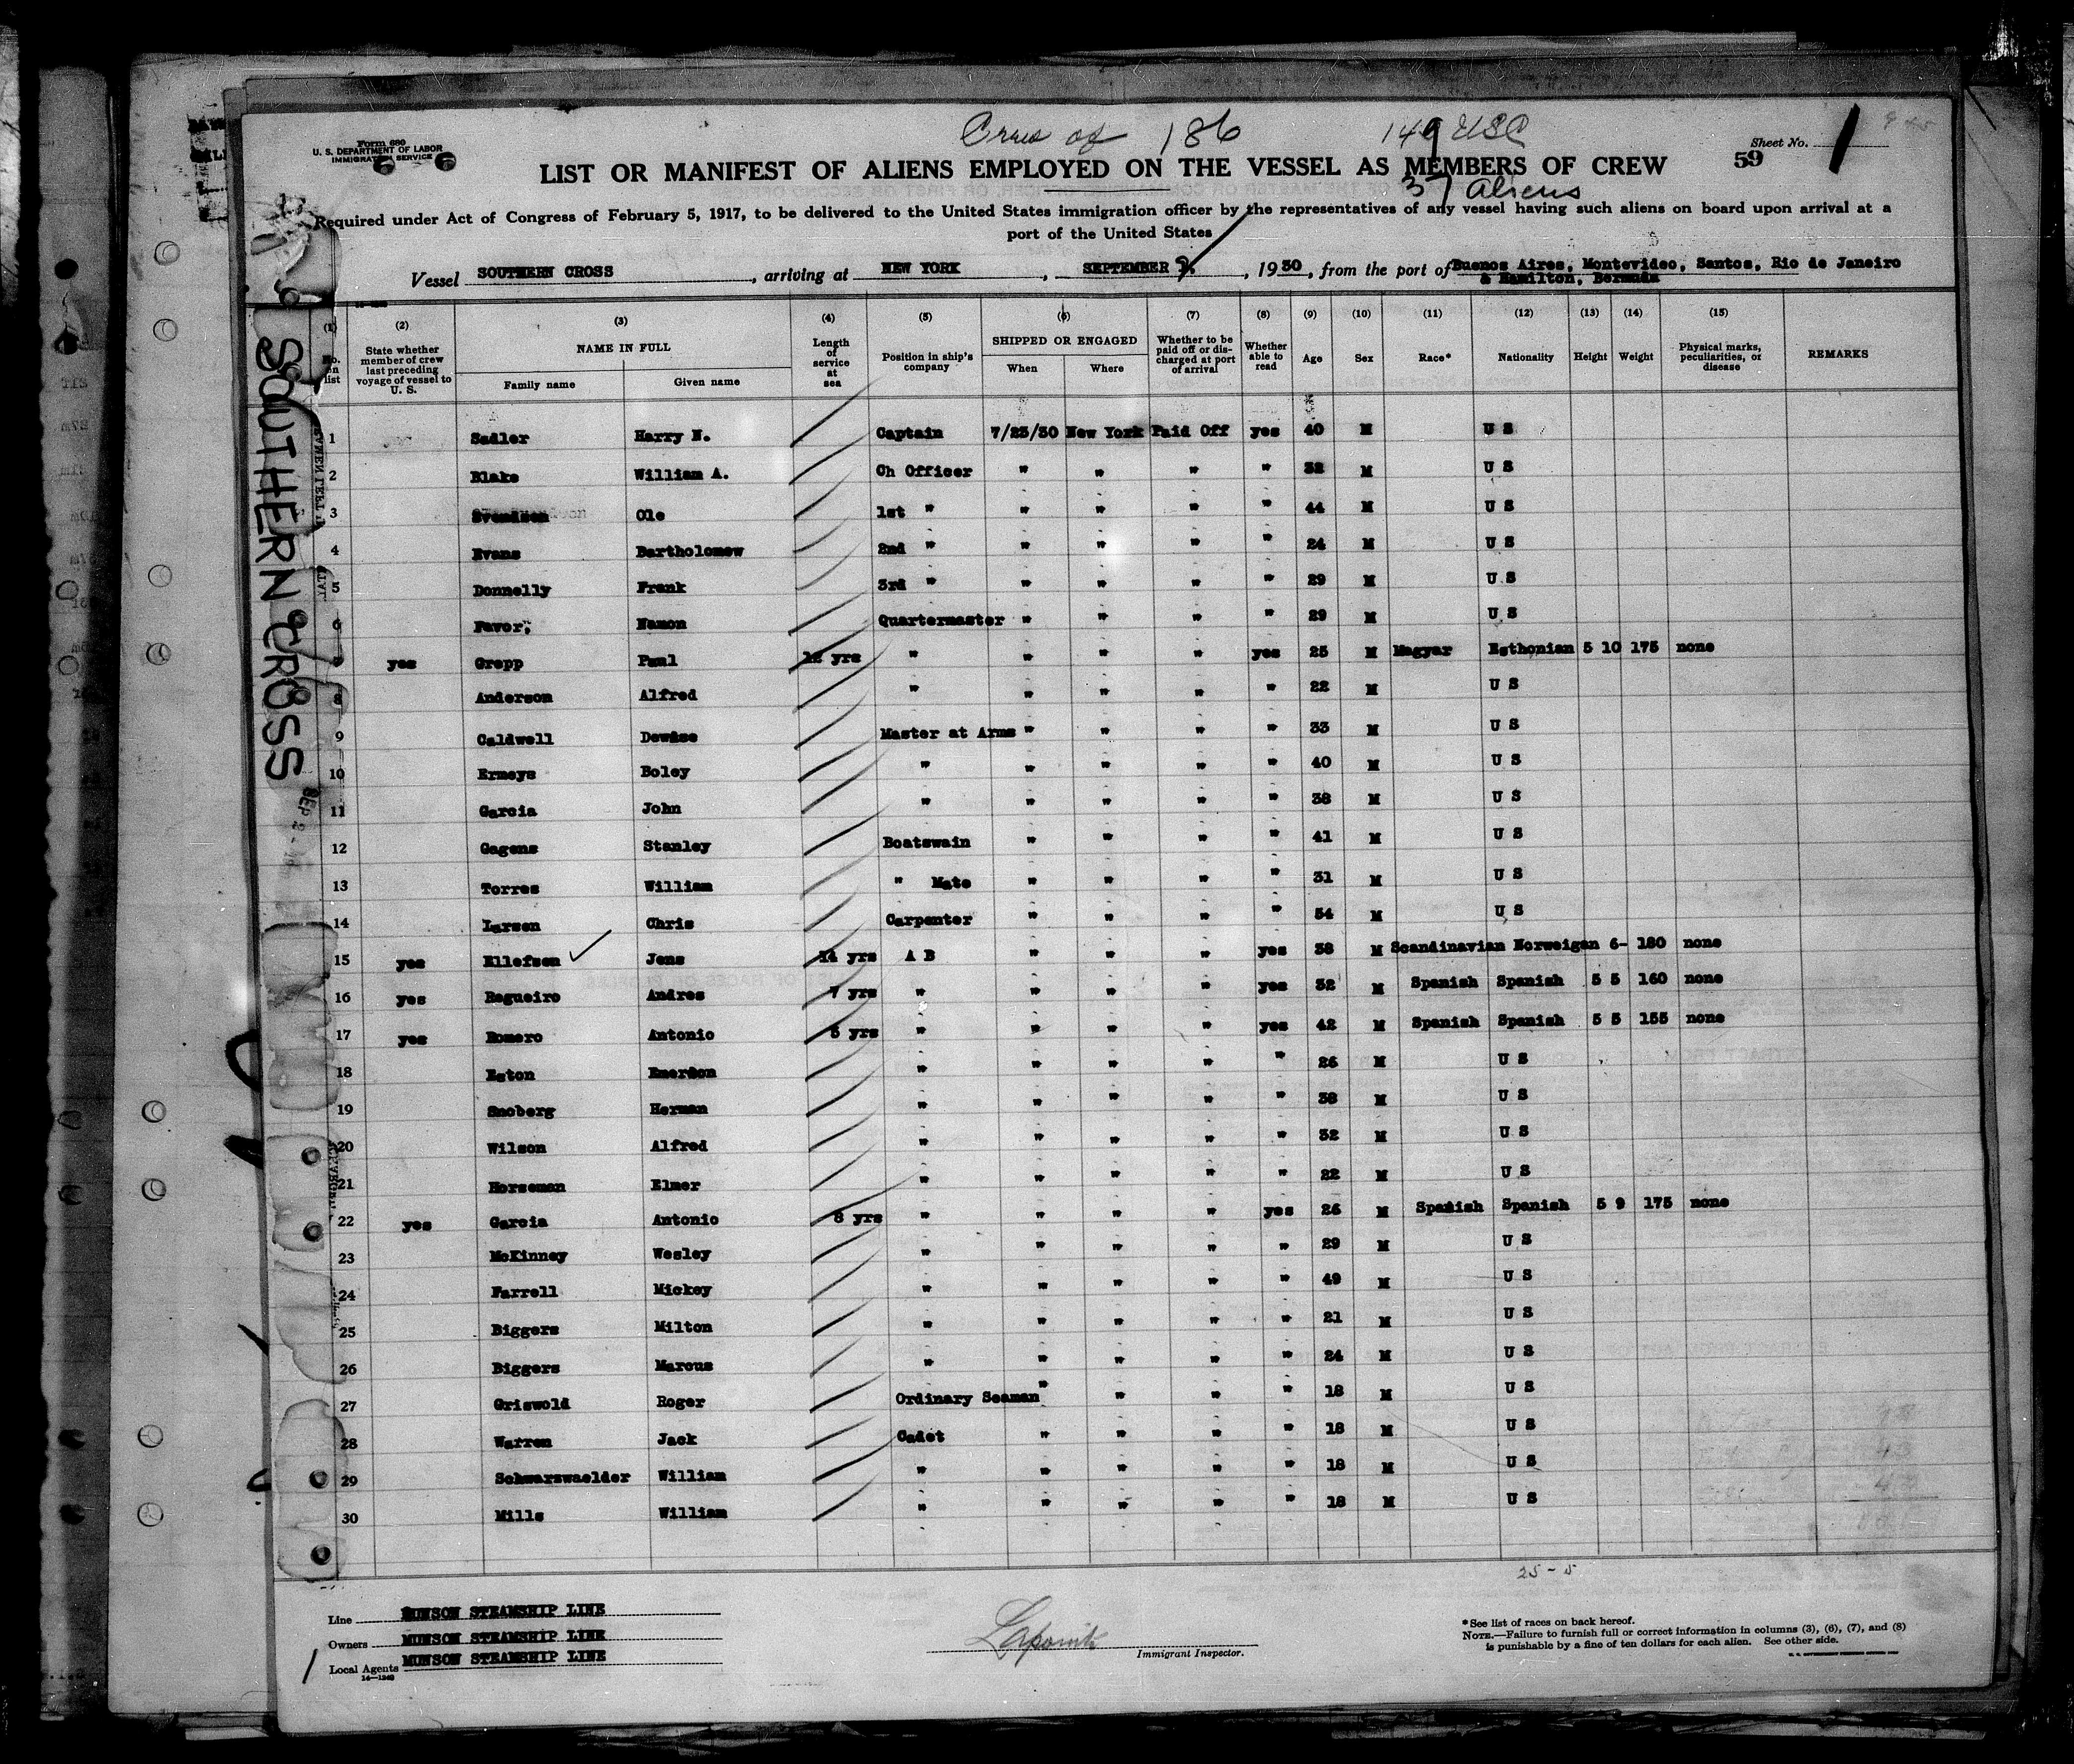 Crew of 186 149 USC
37 Aliens
Form 680
U. S. DEPARTMENT OF LABOR
IMMIGRATION SERVICE
6 6
Sheet No. 1
59
LIST OR MANIFEST OF ALIENS EMPLOYED ON THE VESSEL AS MEMBERS OF CREW
Required under Act of Congress of February 5, 1917, to be delivered to the United States immigration officer by the representatives of any vessel having such aliens on board upon arrival at a
port of the United States
Vessel SOUTHERN CROSS, arriving at NEW YORK, SEPTEMBER 2, 1930, from the port of Buenos Aires, Montevideo, Santos, Rio de Janeiro
& Hamilton, Bermuda
SOUTHERN CROSS
(1) No. on list
(2) State whether member of crew last preceding voyage of vessel to U. S.
(3) NAME IN FULL Family name Given name
(4) Length of service at sea
(5) Position in ship's company
(6) SHIPPED OR ENGAGED When Where
(7) Whether to be paid off or discharged at port of arrival
(8) Whether able to read
(9) Age
(10) Sex
(11) Race*
(12) Nationality
(13) Height
(14) Weight
(15) Physical marks, peculiarities, or disease
REMARKS
1 Sadler Harry N. Captain 7/23/30 New York Paid Off yes 40 M U S
2 Blake William A. Ch Officer " " " " 32 M U S
3 Svendsen Ole 1st " " " " " 44 M U S
4 Evans Bartholomew 2nd " " " " " 24 M U S
5 Donnelly Frank 3rd " " " " " 29 M U S
6 Favor, Namon Quartermaster " " " " 29 M U S
7 yes Grepp Paul 12 yrs " " " " yes 25 M Magyar Esthonian 5 10 175 none
8 Anderson Alfred " " " " " 22 M U S
9 Caldwell Master at Arms " " " " 33 M U S
10 Ermeys Boley " " " " " 40 M U S
11 Garcia John " " " " " 38 M U S
12 Gagens Stanley Boatswain " " " " 41 M U S
13 Torres William " Mate " " " " 31 M U S
14 Larsen Chris Carpenter " " " " 54 M U S
15 yes Ellefsen Jens 14 yrs A B " " " yes 38 M Scandinavian Norweigan 6- 180 none
16 yes Regueiro Andres 7 yrs " " " " yes 32 M Spanish Spanish 5 5 160 none
17 yes Romero Antonio 5 yrs " " " " yes 42 M Spanish Spanish 5 5 155 none
18 Eston Emerson " " " " " 26 M U S
19 Snoberg Herman " " " " " 38 M U S
20 Wilson Alfred " " " " " 32 M U S
21 Horseman Elmer " " " " " 22 M U S
22 yes Garcia Antonio 8 yrs " " " " yes 26 M Spanish Spanish 5 9 175 none
23 McKinney Wesley " " " " " 29 M U S
24 Farrell Mickey " " " " " 49 M U S
25 Biggers Milton " " " " " 21 M U S
26 Biggers Marcus " " " " " 24 M U S
27 Griswold Roger Ordinary Seaman " " " " 18 M U S
28 Warren Jack Cadet " " " " 18 M U S
29 Schwarzwaelder William " " " " " 18 M U S
30 Mills William " " " " " 18 M U S
25 - 5
Line MUNSON STEAMSHIP LINE
Owners MUNSON STEAMSHIP LINE
Local Agents MUNSON STEAMSHIP LINE
14—1240
Immigrant Inspector.
*See list of races on back hereof.
NOTE.—Failure to furnish full or correct information in columns (3), (6), (7), and (8)
is punishable by a fine of ten dollars for each alien. See other side.